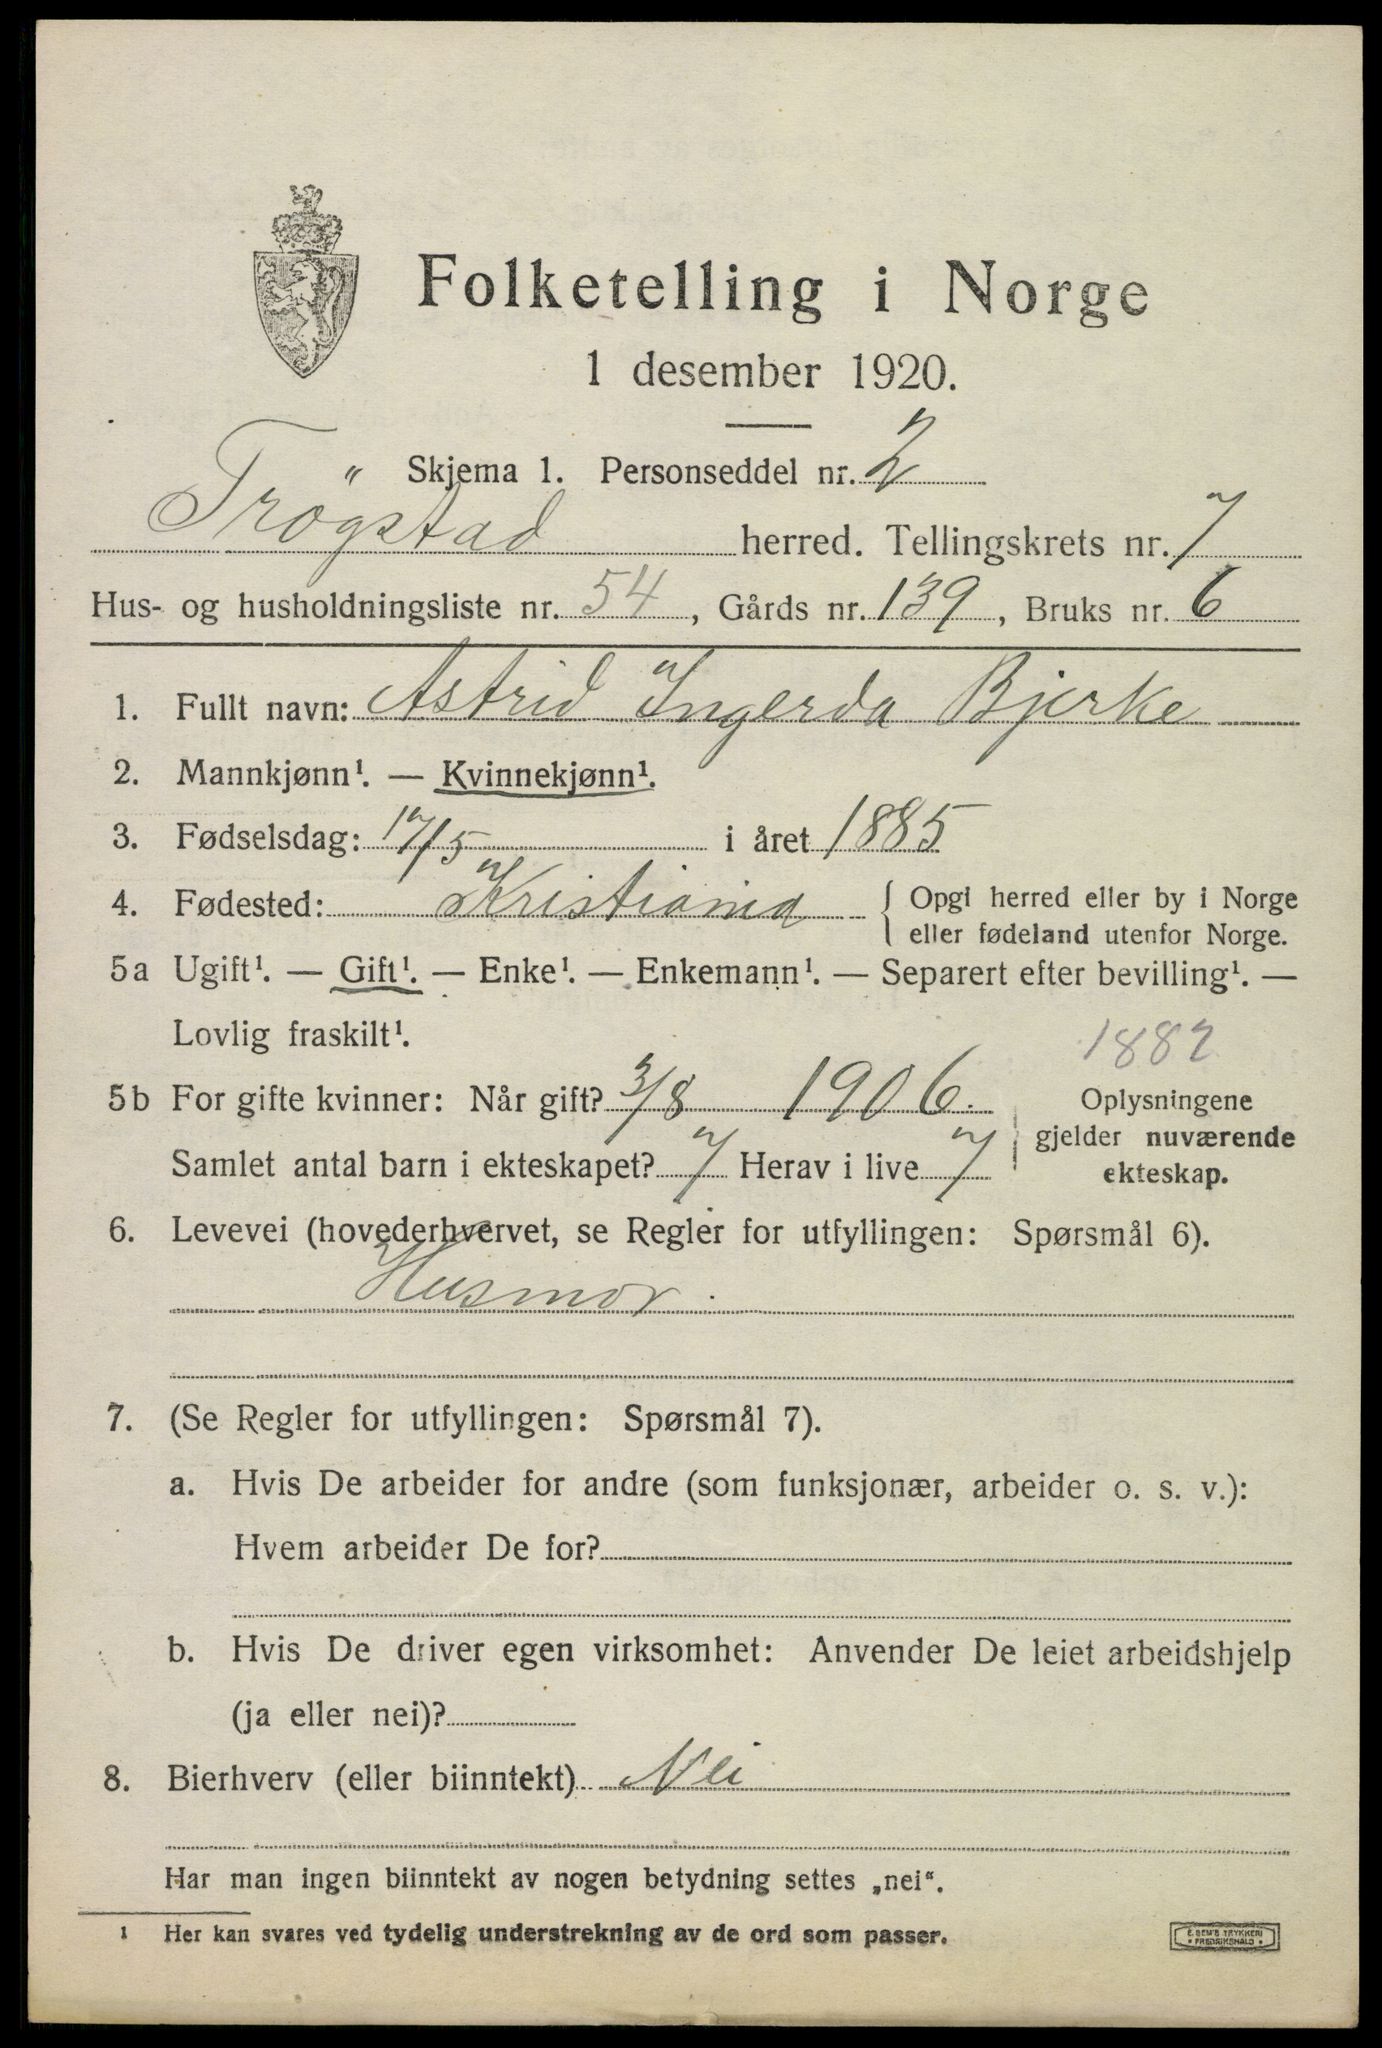 Folketelling i Norge
1 desember 1920.
Skjema 1. Personseddel nr. 2
Trögstad herred. Tellingskrets nr. 7
Hus- og husholdningsliste nr. 54, Gårds nr. 139, Bruks nr. 6
1. Fullt navn: Astrid Ingerda Bjerke
2. Mannkjønn¹. — Kvinnekjønn¹.
3. Fødselsdag: 17/5 i året 1885
4. Fødested: Kristiania { Opgi herred eller by i Norge
eller fødeland utenfor Norge.
5a Ugift¹. — Gift¹. — Enke¹. — Enkemann¹. — Separert efter bevilling¹. —
Lovlig fraskilt¹.
1882
5b For gifte kvinner: Når gift? 3/8 1906. Oplysningene
gjelder nuværende
Samlet antal barn i ekteskapet? 7 Herav i live 7 ekteskap.
6. Levevei (hovederhvervet, se Regler for utfyllingen: Spørsmål 6).
Husmor.
7. (Se Regler for utfyllingen: Spørsmål 7).
a. Hvis De arbeider for andre (som funksjonær, arbeider o. s. v.):
Hvem arbeider De for?
b. Hvis De driver egen virksomhet: Anvender De leiet arbeidshjelp
(ja eller nei)?
8. Bierhverv (eller biinntekt) Nei
Har man ingen biinntekt av nogen betydning settes „nei“.
1 Her kan svares ved tydelig understrekning av de ord som passer.
E. SEM'S TRYKKERI
• FREDRIKSHALD •